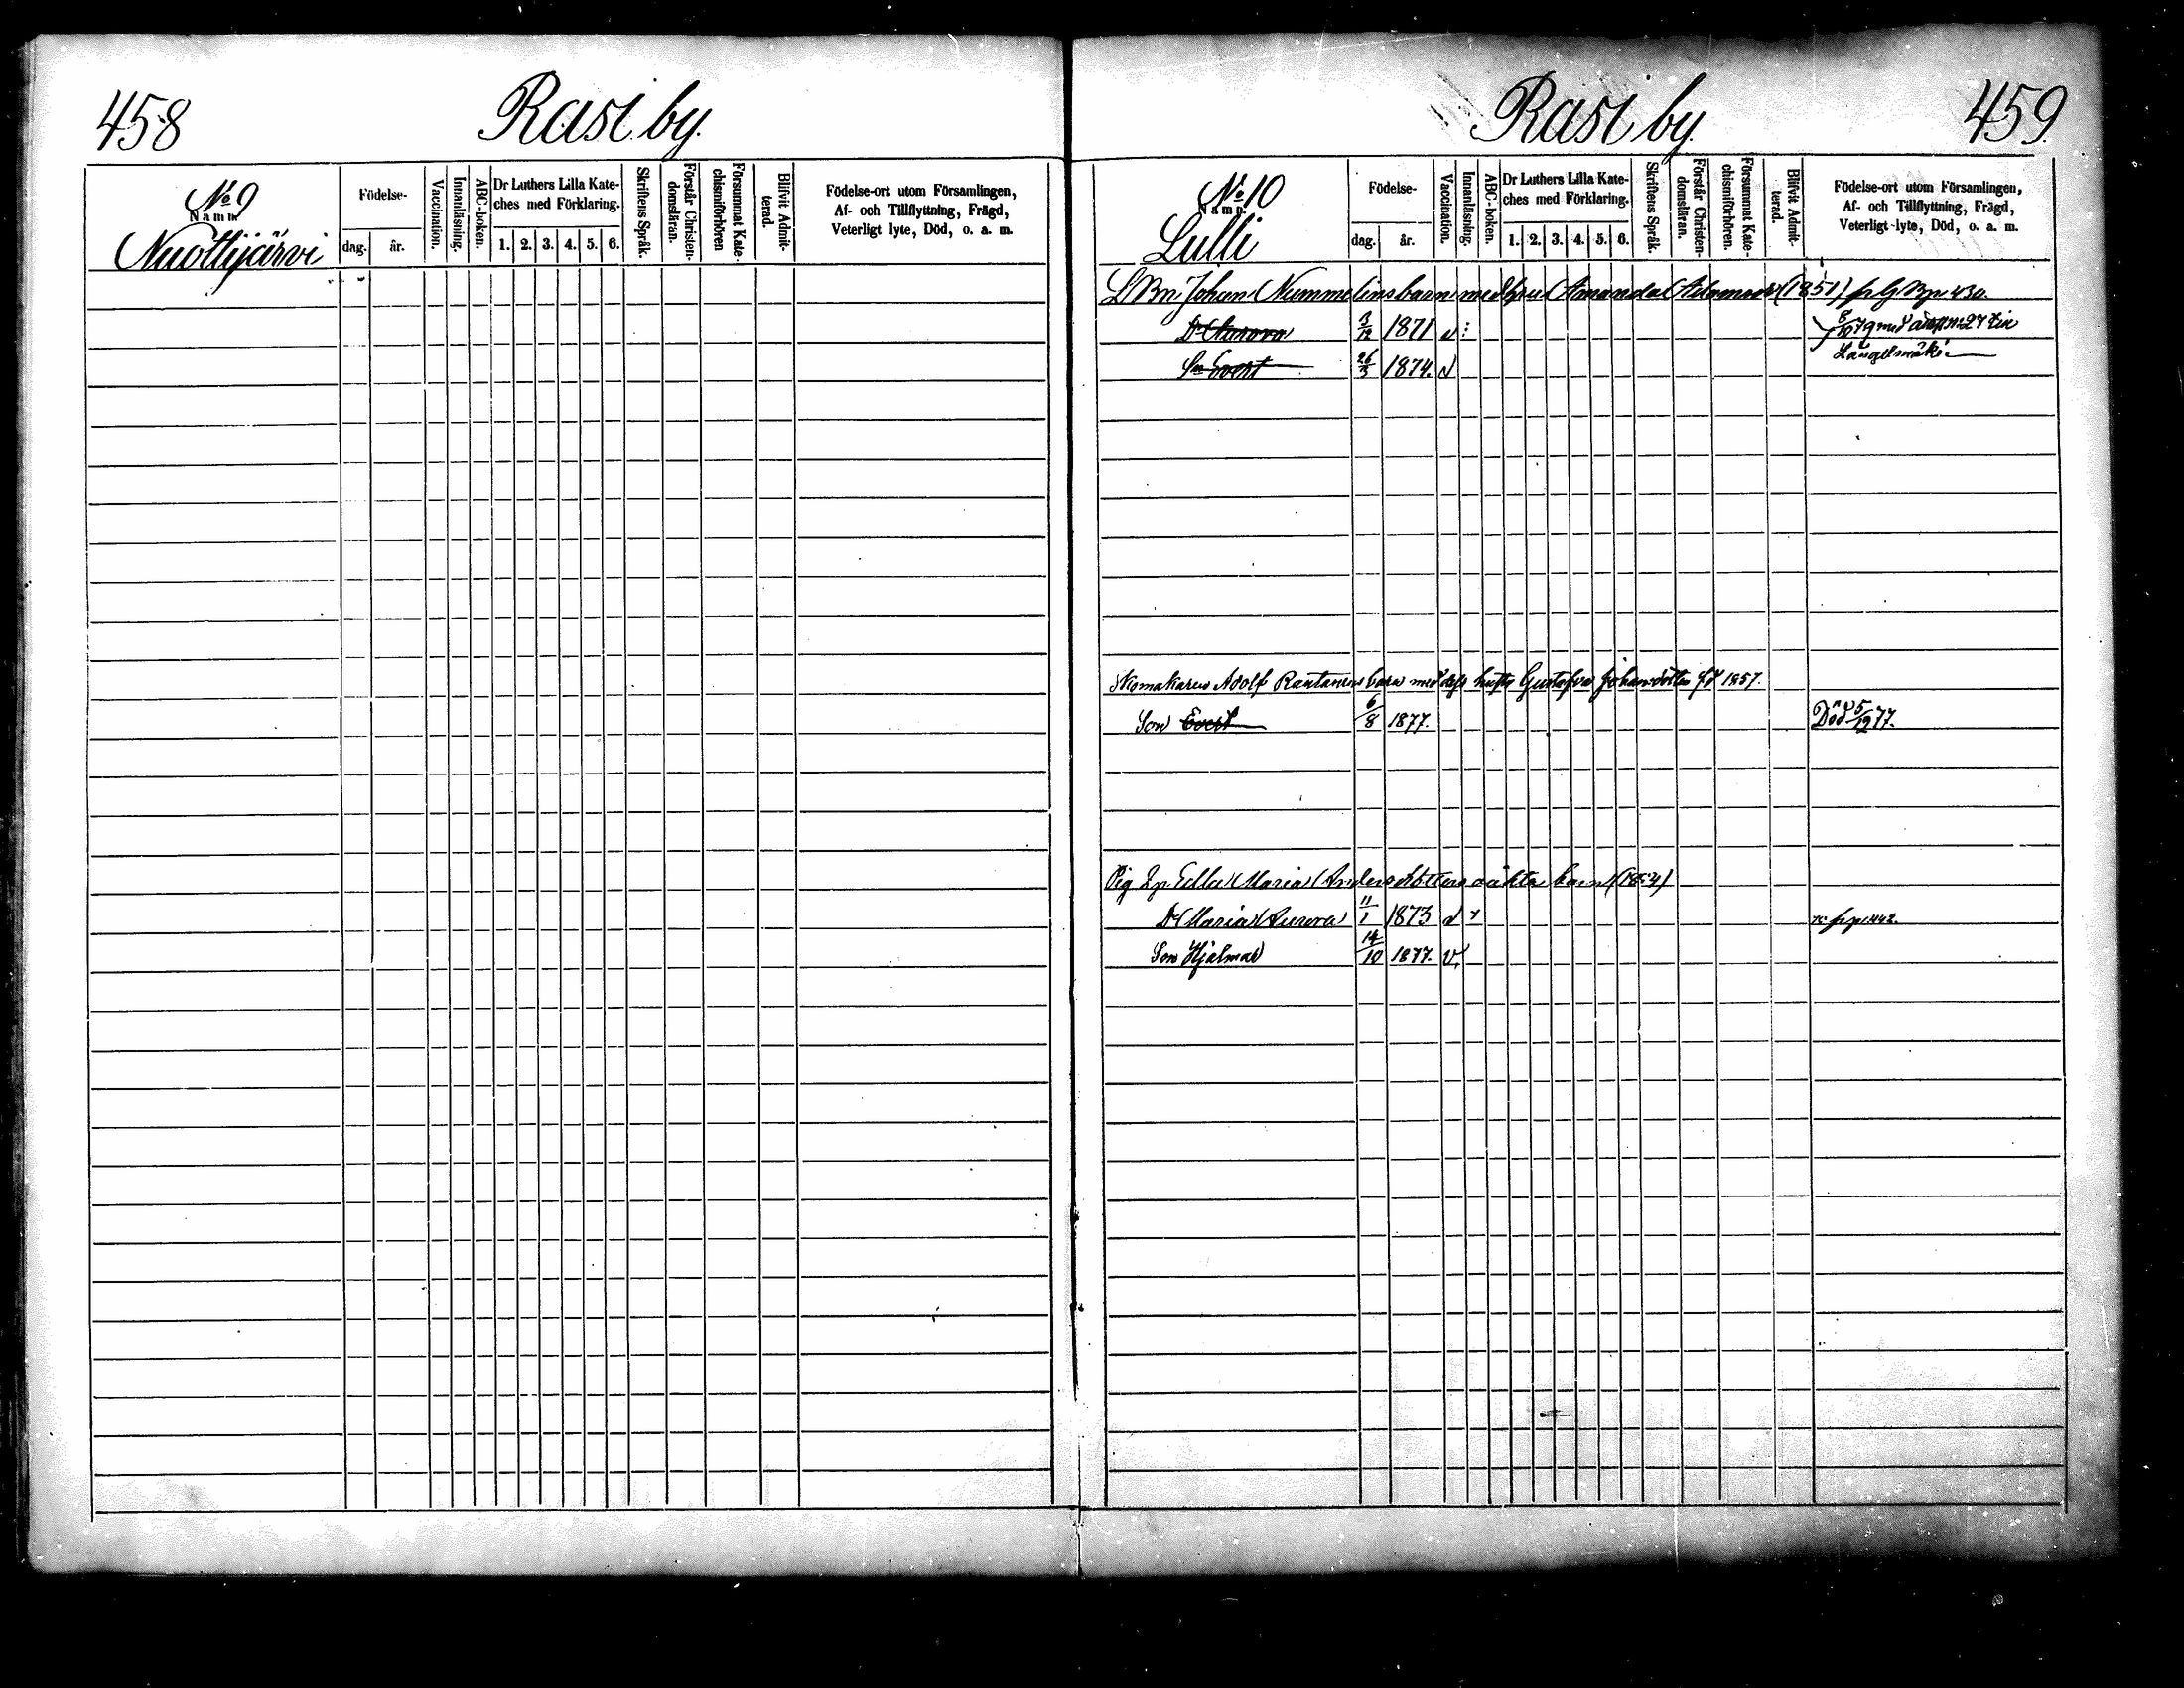 458 Rasi by.
No 9
Namn
Nuottijärvi
Födelse-
dag. år.
Vaccination.
Innanläsning.
ABC-boken.
Dr Luthers Lilla Kate-
ches med Förklaring.
1. 2. 3. 4. 5. 6.
Skriftens Språk.
Förstår Christen-
domsläran.
Försummat Kate-
chismiförhören
Blifvit Admit-
terad.
Födelse-ort utom Församlingen,
Af- och Tillflyttning, Frägd,
Veterligt lyte, Död, o. a. m.
Rasi by 459
No 10
Namn.
Lulli
Födelse-
dag. år.
Vaccination.
Innanläsning.
ABC-boken.
Dr Luthers Lilla Kate-
ches med Förklaring.
1. 2. 3. 4. 5. 6.
Skriftens Språk.
Förstår Christen-
domsläran.
Försummat Kate-
chismiförhören.
Blifvit Admit-
terad.
Födelse-ort utom Församlingen,
Af- och Tillflyttning, Frägd,
Veterligt lyte, Död, o. a. m.
Johan Nummelins barn med hru Amanda (1851)
Dr Aurora 3/12 1871 v 8/10 79 med
Sn Evert 26/3 1874. v Längelmäki
Skomakaren Adolf Rautanens barn med dess hustru Gustafva Johansdotter född 1857.
Son Evert 6/8 1877. Död 5/12 77.
Pig Edla Maria Andersdotters oäkta barn
Dr Maria Aurora 11/1 1873 v fr p 442.
Son Hjalmar 14/10 1877. v.